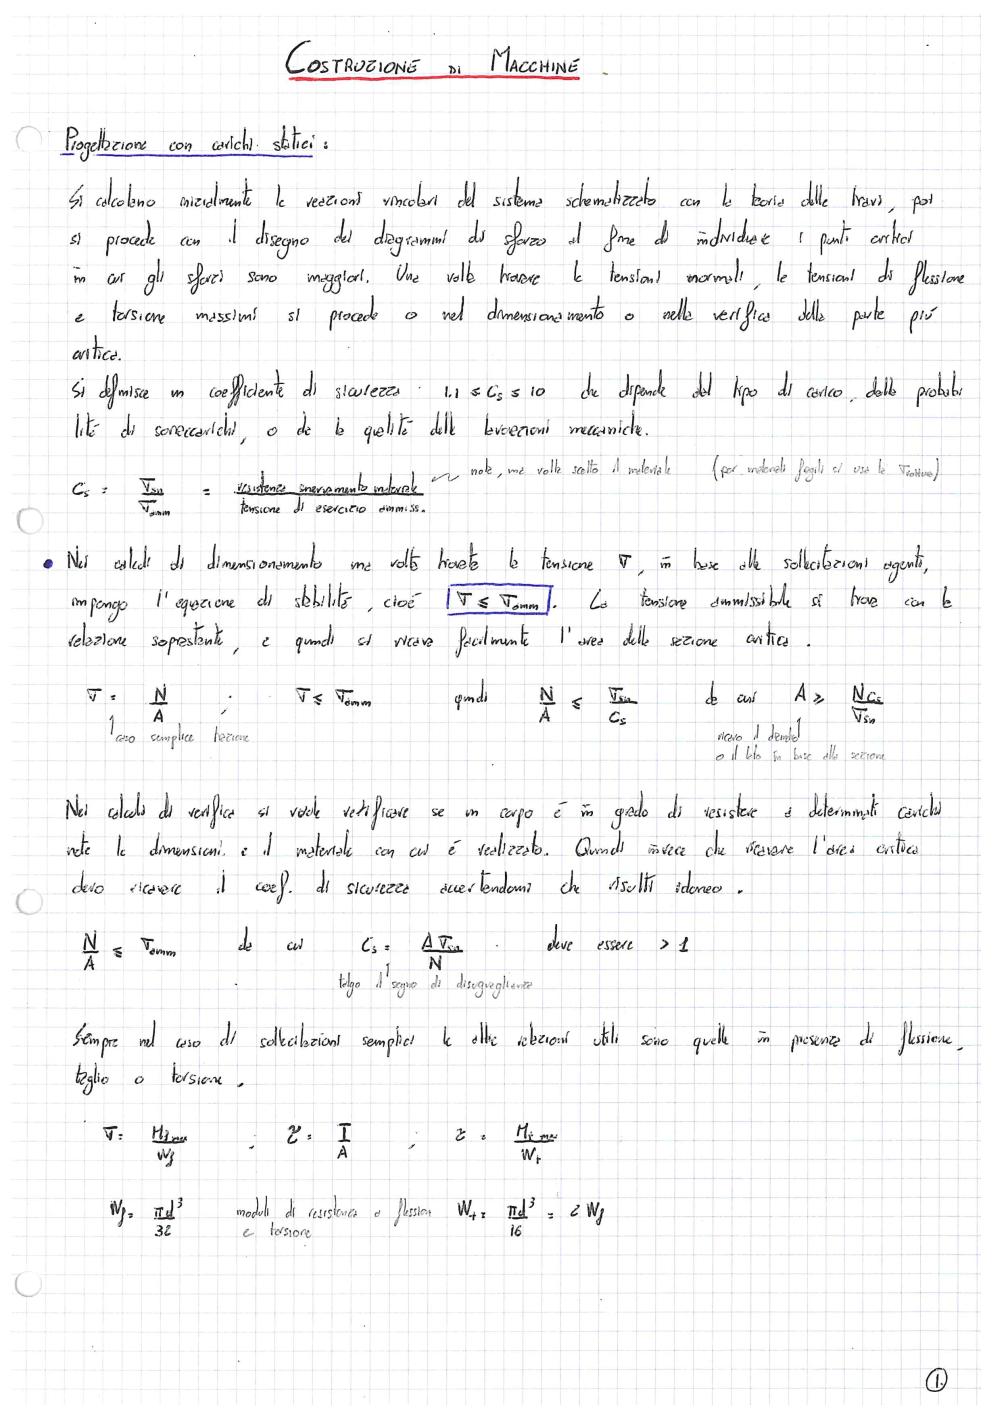 COSTRUZIONE DI MACCHINE
Progettazione con carichi statici:
Si calcolano inizialmente le reazioni vincolari del sistema schematizzato con la teoria delle travi, poi
si procede con il disegno dei diagrammi di sforzo al fine di individuare i punti critici
in cui gli sforzi sono maggiori. Una volta trovare le tensioni normali, le tensioni di flessione
e torsione massimi si procede o nel dimensionamento o nella verifica della parte più
critica.
Si definisce un coefficiente di sicurezza 1,1 ≤ Cs ≤ 10 che dipende dal tipo di carico, dalla probabi
lità di sovraccarichi, o da la qualità delle lavorazioni meccaniche.
Cs = σsn/σamm = resistenza snervamento materiale/tensione di esercizio ammiss. nota, una volta scelto il materiale (per materiali fragili si usa la σrottura)
• Nei calcoli di dimensionamento una volta trovata la tensione σ, in base alle sollecitazioni agenti,
impongo l'equazione di stabilità, cioè σ ≤ σamm. La tensione ammissibile si trova con la
relazione soprastante, e quindi si ricava facilmente l'area della sezione critica.
σ = N/A ; σ ≤ σamm quindi N/A ≤ σsn/Cs da cui A ≥ N Cs/σsn
caso semplice trazione ricavo il diametro
o il lato in base alla sezione
Nei calcoli di verifica si vuole verificare se un corpo è in grado di resistere a determinati carichi
note le dimensioni e il materiale con cui è realizzato. Quindi invece che ricavare l'area critica
devo ricavare il coef. di sicurezza accertandomi che risulti idoneo.
N/A ≤ σamm da cui Cs = A σsn/N deve essere > 1
tolgo il segno di disuguaglianza
Sempre nel caso di sollecitazioni semplici le altre relazioni utili sono quelle in presenza di flessione,
taglio o torsione.
σ = Mf max/Wf ; τ = T/A ; τ = Mt max/Wt
Wf = πd³/32 moduli di resistenza a flession Wt = πd³/16 = 2 Wf
e torsione
1.